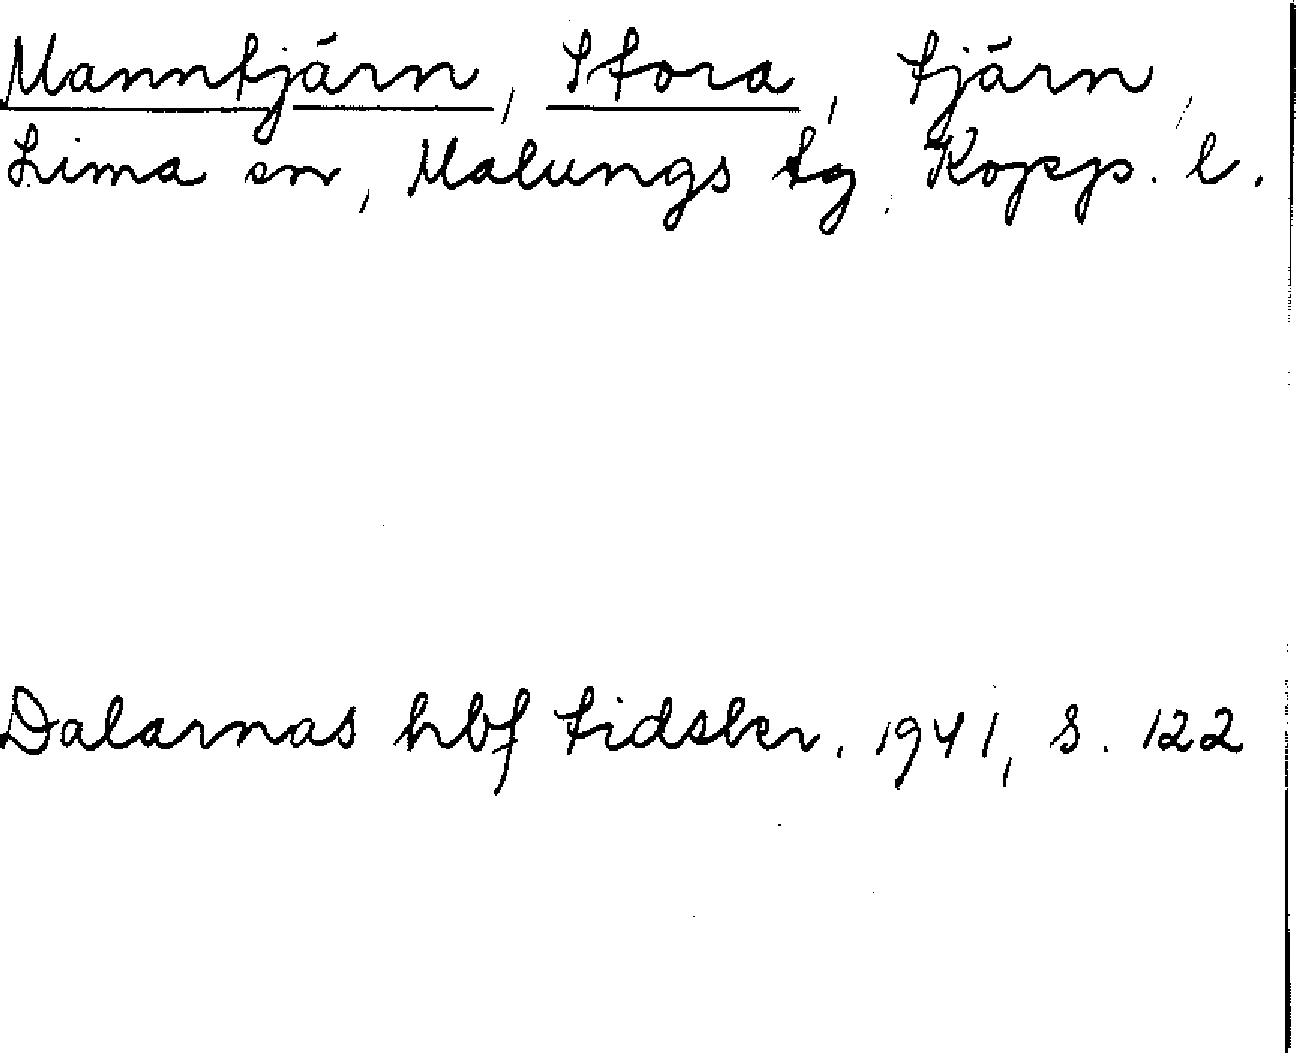 Manntjärn, Stora, tjärn,
Lima sn, Malungs tg. Kopp. l.
Dalarnas hbf tidsber. 1941, s. 122